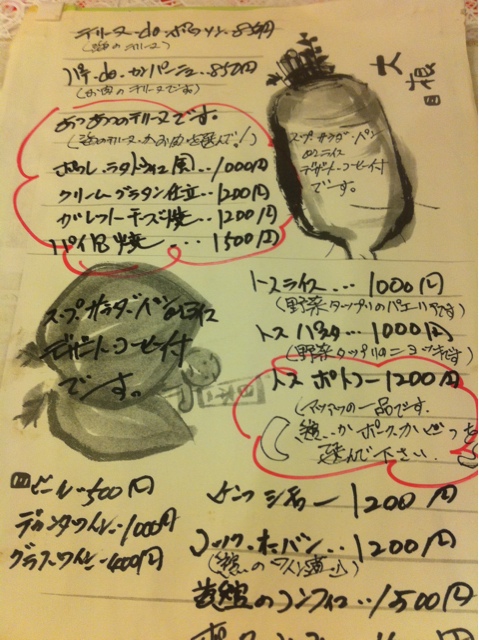 テリーヌ・do・ポワソン・850円
(のテリーヌ)
パテ・do・カンパーニュ・・850円
(お肉のテリーヌです)
大根
あつあつのテリーヌです。
ラタトゥイユ風・・1000円
クリームグラタン仕立・・1200円
ガレットチーズ焼・・1200円
パイ包焼・・・1500円
スープ サラダ・パン
orライス
デザート・コーヒー付
です。
スープ サラダ・パンorライス
デザートコーヒー付
です。
トスライス・・・1000円
(野菜タップリのパエリアです)
トスパスタ・・・1000円
(野菜タップリのニョッキ
トスポトフー1200円
(アツアツの一品です。
かポークかどっちを
選んで下さい。
ビール・・500円
デカンタワイン・・1000円
グラスワイン・・400円
1200円
コック・オ・バン・・・1200円
のコンフィ・・・1500円